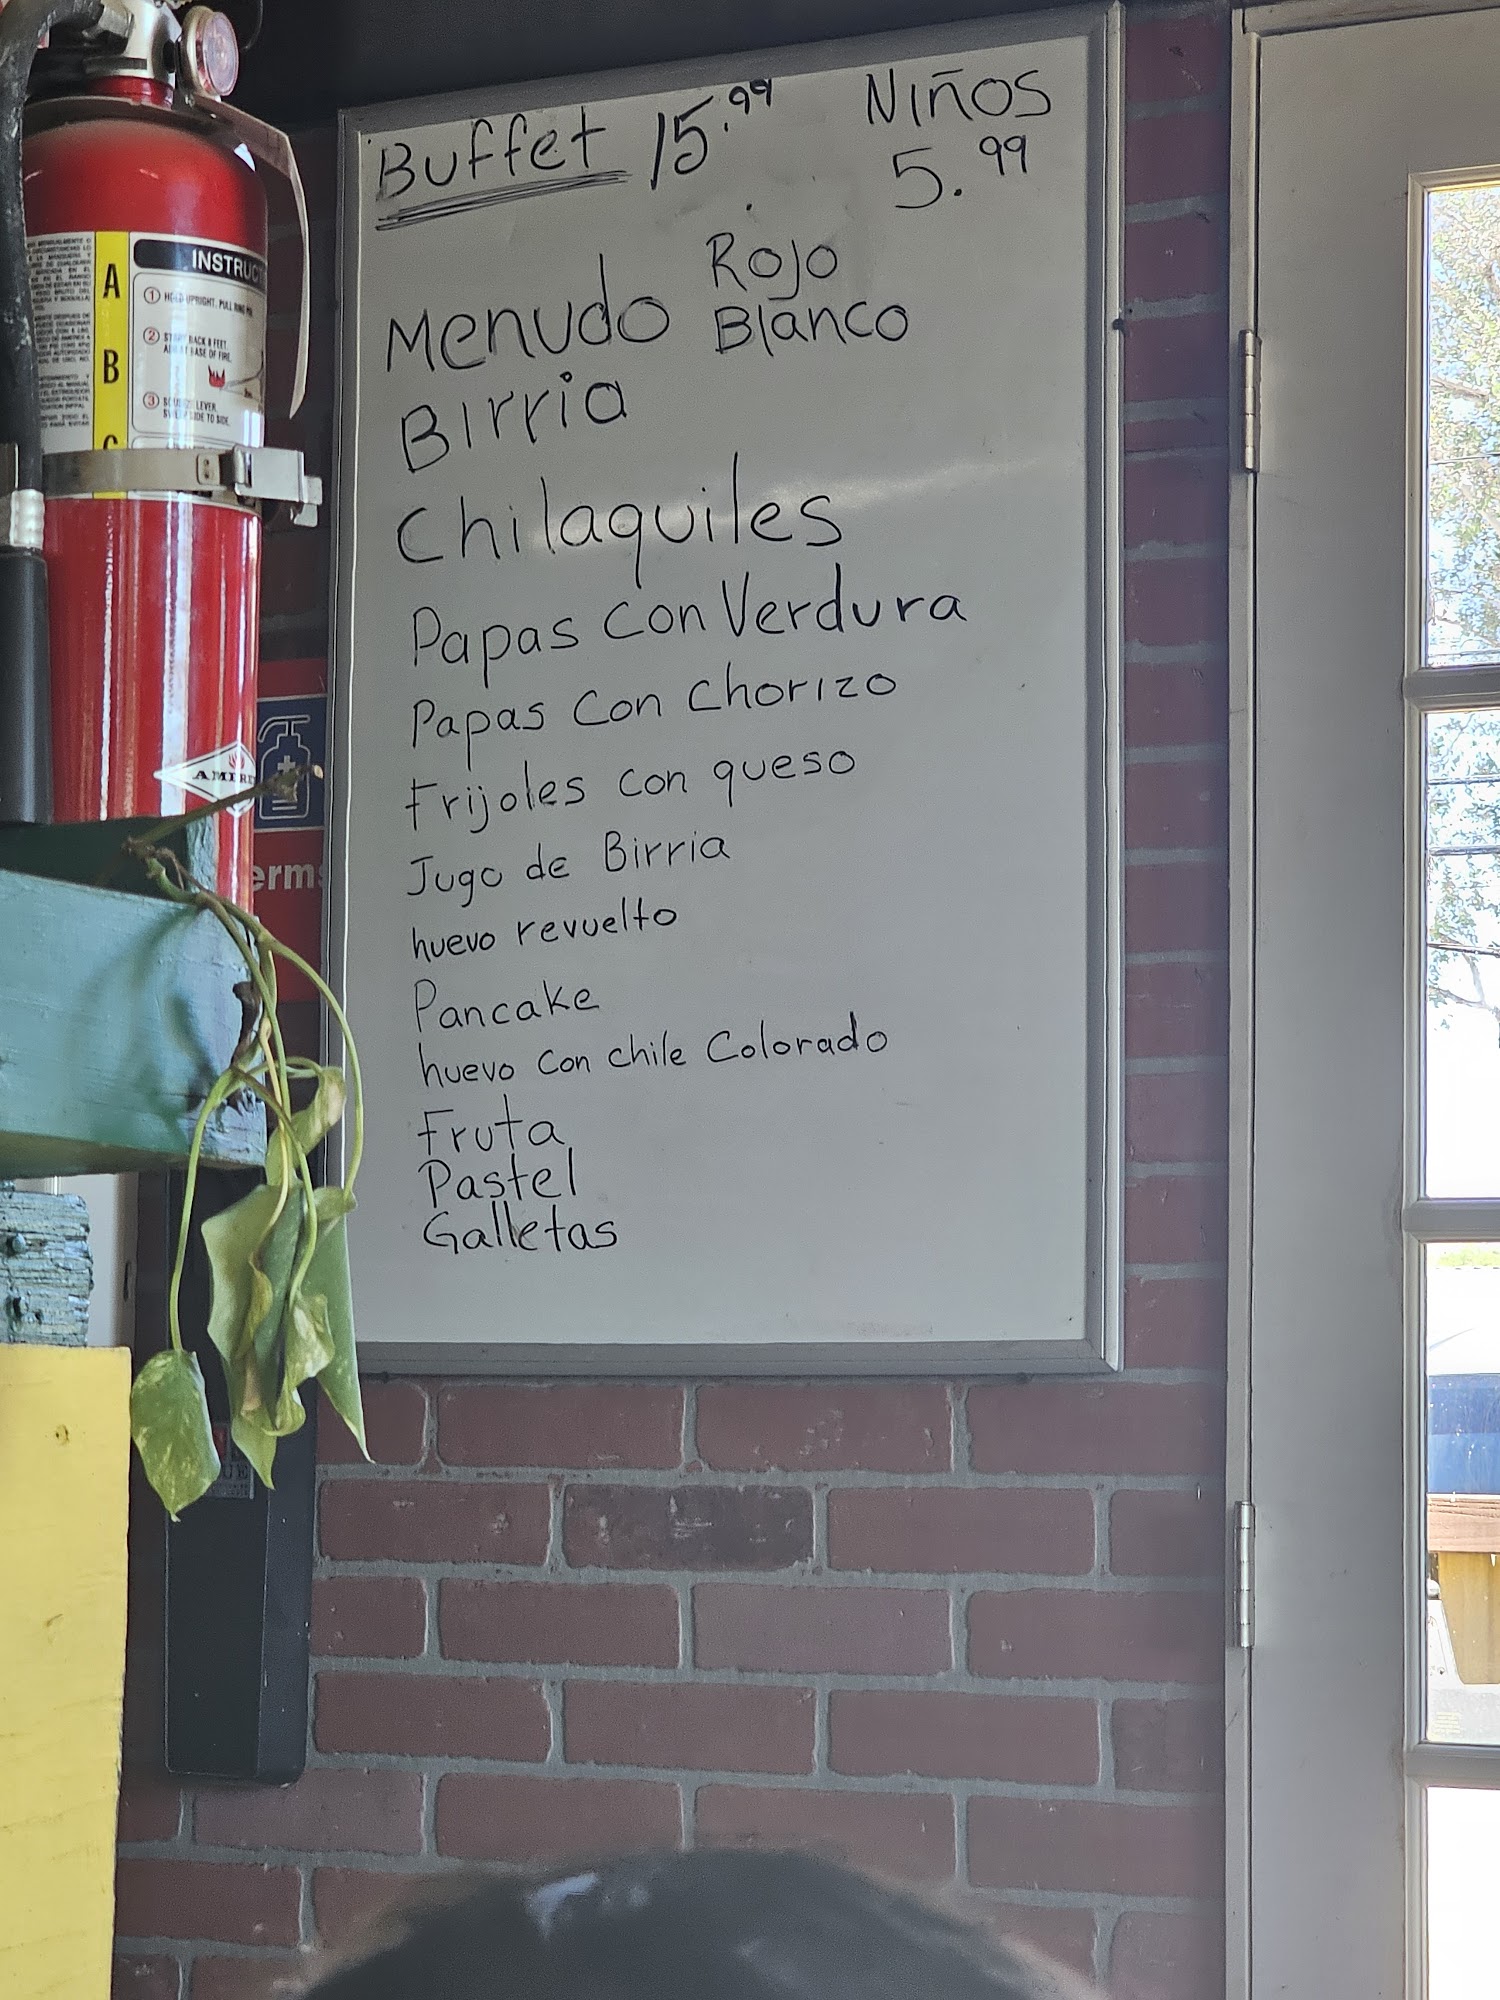 Buffet 15.99
Niños
5.99
Menudo Rojo
Blanco
Birria
Chilaquiles
Papas con Verdura
Papas con chorizo
Frijoles con queso
Jugo de Birria
huevo revuelto
Pancake
huevo con chile Colorado
Fruta
Pastel
Galletas
INSTRUC
A
B
C
1 HOLD UPRIGHT, PULL RING PIN
2
BACK 8 FEET,
AT BASE OF FIRE.
3 LEVER,
SIDE TO SIDE.
AMERE
erms
UE